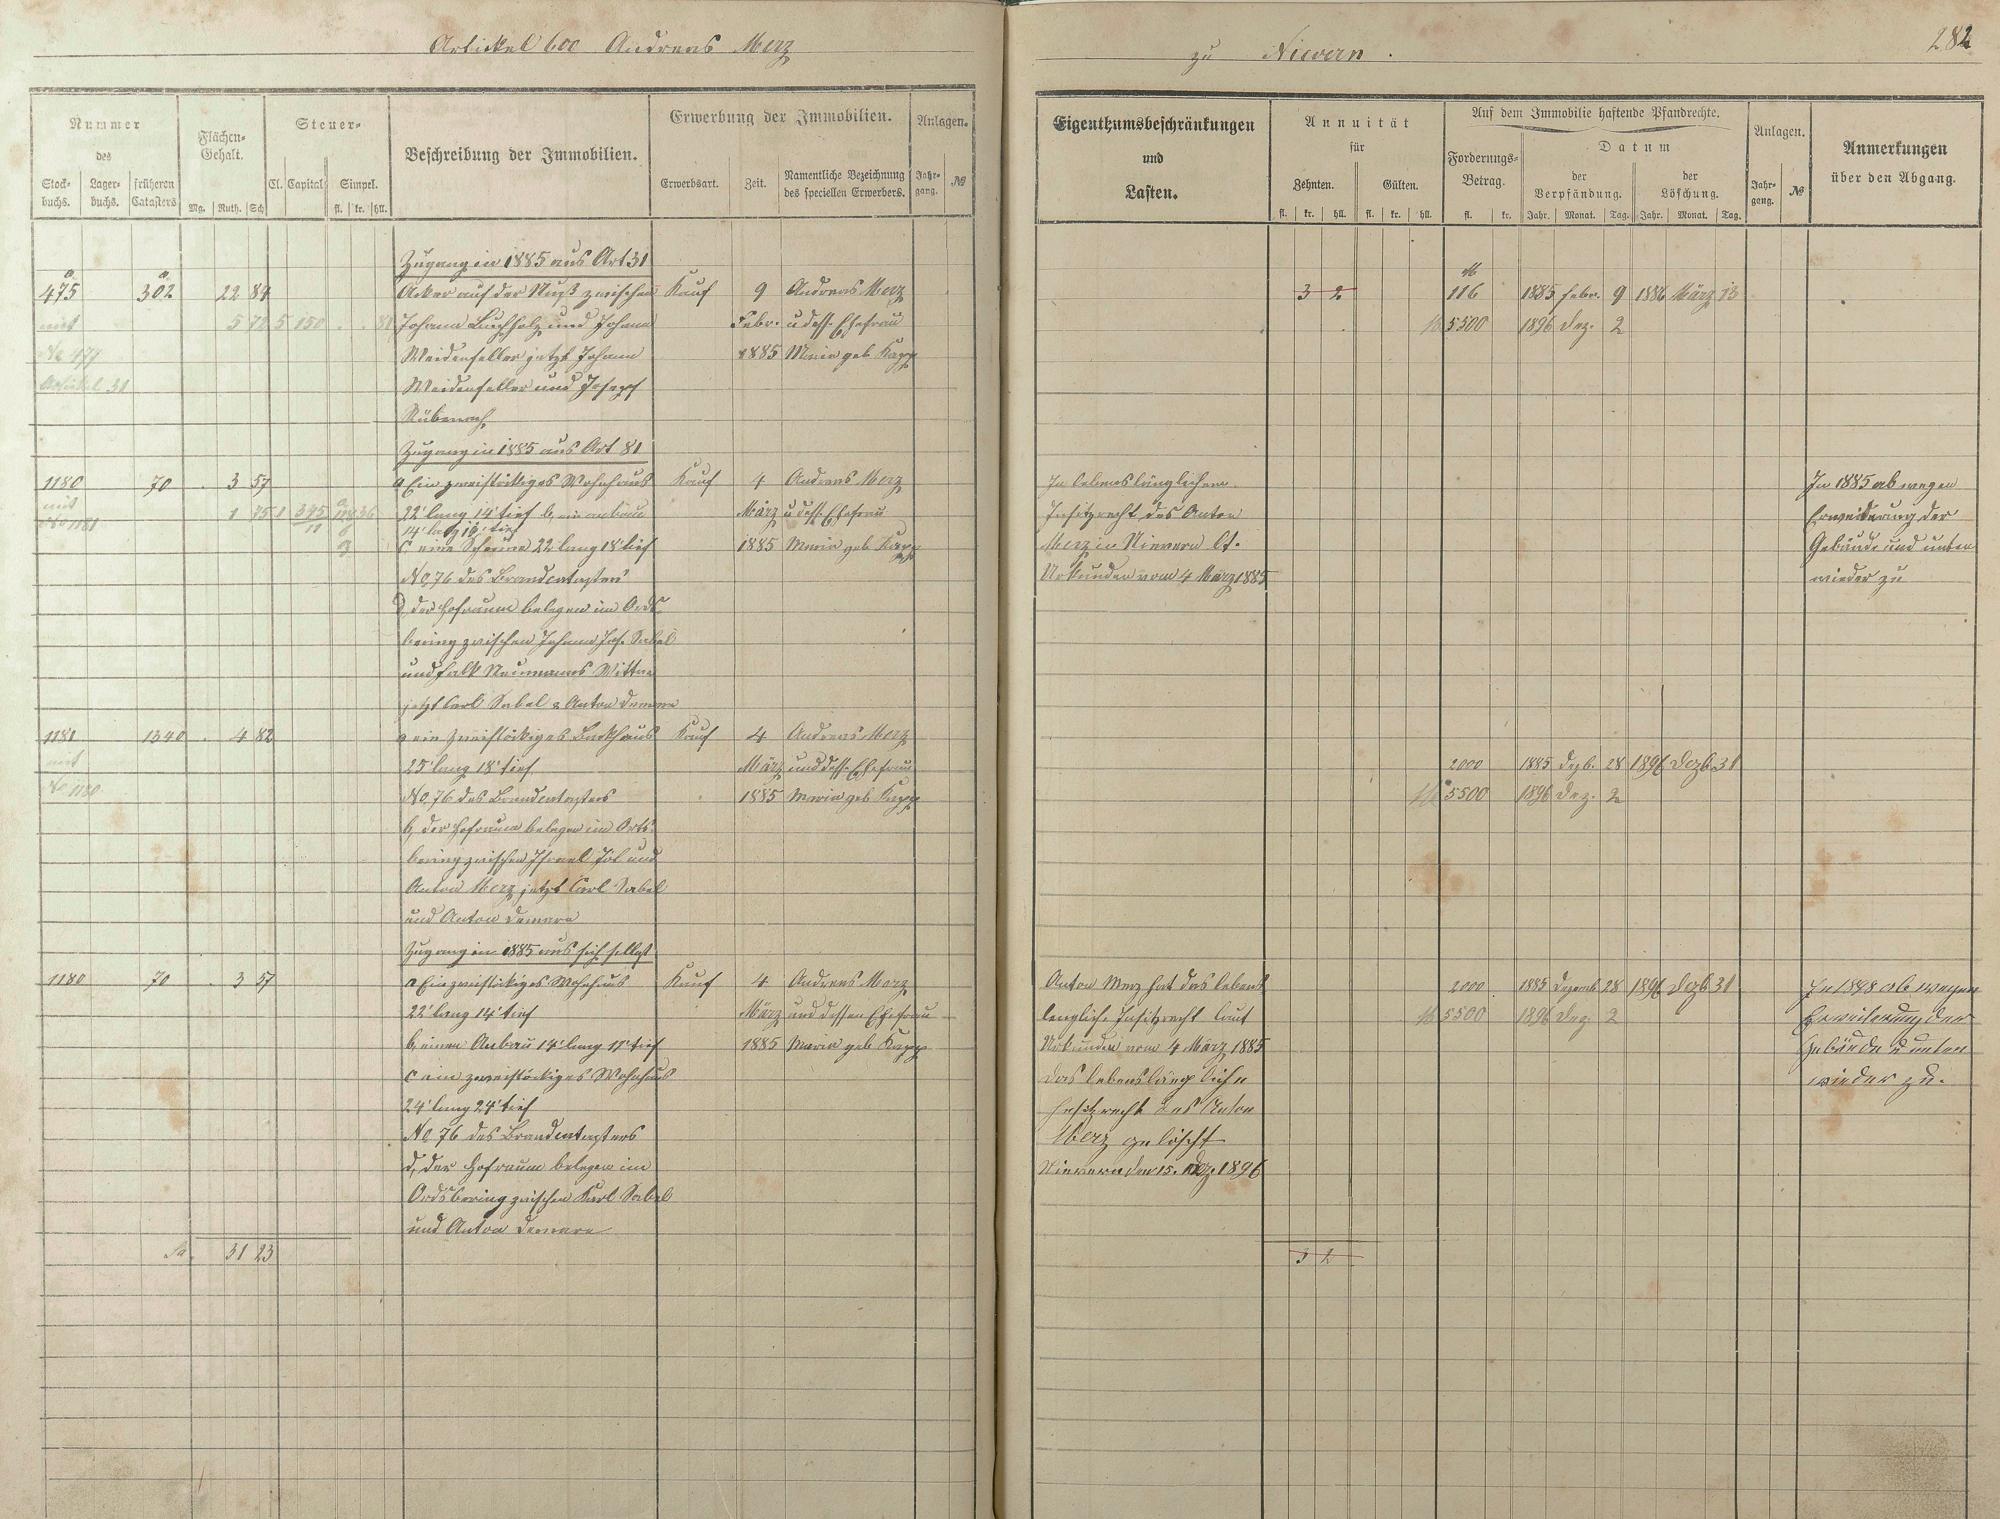 Artickel 600 Andreas Merz
zu Nievern.
282
Nummer
des
Stock-
buchs.
Lager-
buchs.
früheren
Catasters
Flächen-
Gehalt.
Mg. Ruth. Sch
Steuer-
Cl. Capital Simpel.
fl. kr. hll.
Beschreibung der Immobilien.
Erwerbung der Immobilien.
Erwerbsart. Zeit.
Namentliche Bezeichnung
des speciellen Erwerbers.
Anlagen.
Jahr-
gang.
№
Zugang in 1885 aus Art 31
475 302 22 84 Acker auf der Nuß zwischen Kauf 9 Andreas Merz
mit 5 72 5 150 Johann Buchholz und Johann Febr. u dess. Ehefrau
No 477 Weidenfeller jetzt Johann 1885 Maria geb Kapp
Artikel 31 Weidenfeller und Josepf
Zugang in 1885 aus Art 81
1180 70 3 57 a Ein zweistöckiges Wohnhaus Kauf 4 Andreas Merz
mit 1 75 1 22' lang 14' tief b, ein anbau März u dess. Ehefrau
1181 14' lang 10' tief
c eine Scheune 22 lang 18' tief 1885 Maria geb Kapp
No 76 des Brandcatasters
d, der Hofraum belegen im Ords
bering zwischen Johann Jos. Sabel
und Falk Neumanns Wittwe
jetzt Carl Sabel & Anton Demare
1181 1340 4 82 a ein zweistöckiges Backhaus Kauf 4 Andreas Merz
mit 25' lang 18' tief März und dess. Ehefrau
No 1180 No 76 des Brandcatasters 1885 Maria geb Kapp
b, der Hofraum belegen im Orts-
bering zwischen Israel Jöl und
Anton Merz jetzt Carl Sabel
und Anton Demare
Zugang in 1885 aus sich selbst
1180 70 3 57 a Ein zweistöckiges Wohnhaus Kauf 4 Andreas Merz
22' lang 14' tief März und dessen Ehefrau
b, einen Anbau 14' lang 11' tief 1885 Maria geb Kapp
c ein zweistöckiges Wohnhaus
24' lang 24' tief
No 76 des Brandcatasters
d, der Hofraum belegen im
Ordsbering zwischen Karl Sabel
und Anton Demare
Sa. 31 23
Eigenthumsbeschränkungen
und
Lasten.
Annuität
für
Zehnten. Gülten.
fl. kr. hll. fl. kr. hll.
Auf dem Immobilie haftende Pfandrechte.
Forderungs-
Betrag.
fl. kr.
Datum
der
Verpfändung.
der
Löschung.
Jahr. Monat. Tag. Jahr. Monat. Tag.
Anlagen.
Jahr-
gang.
№
Anmerkungen
über den Abgang.
M
3 2 116 1885 Febr. 9 1886 März 13
M 5500 1896 Dez. 2
In lebenslänglichem
Insitzrecht des Anton
Merz in Nievern lt.
Urkunden vom 4 März 1885
In 1885 ab wegen
Erweiterung der
Gebäude und unten
wieder zu
2000 1885 Dezb. 28 1896 Dezb 31
M 5500 1896 Dez. 2
Anton Merz hat das lebens
lengliche Insitzrecht laut
Urkunden vom 4 März 1885
Das lebenslängliche
Insitzrecht des Anton
Merz gelöscht
Nievern den 15. Dez. 1896
2000 1885 Dezemb 28 1896 Dezb 31
M 5500 1896 Dez 2
In 1898 ab wegen
Erweiterung der
Gebäude u unten
wieder zu.
3 2